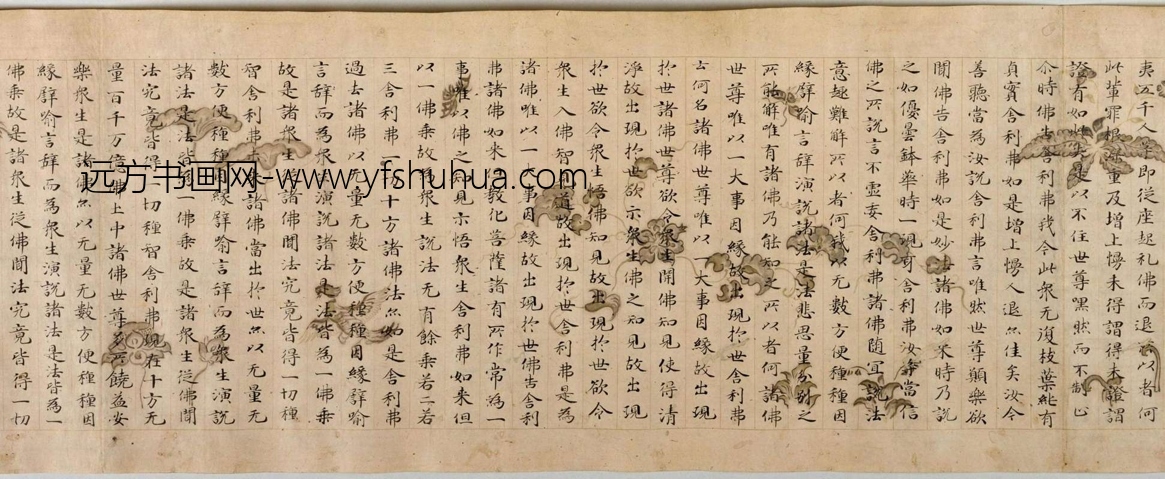 夷五千人等即從座起礼佛而退所以者何
此輩罪根深重及增上慢未得謂得未證謂
證有如此失是以不住世尊嘿然而不制止
尒時佛告舍利弗我今此衆无復枝葉純有
真實舍利弗如是增上慢人退亦佳矣汝今
善聽當為汝說舍利弗言唯然世尊願樂欲
聞佛告舍利弗如是妙法諸佛如来時乃說
之如優曇鉢華時一現耳舍利弗汝等當信
佛之所說言不虛妄舍利弗諸佛随冝說法
意趣難解所以者何我以无數方便種種因
緣譬喻言辞演說諸法是法非思量分別之
所能解唯有諸佛乃能知之所以者何諸佛
世尊唯以一大事因緣故出現於世舍利弗
云何名諸佛世尊唯以一大事因緣故出現
於世諸佛世尊欲令衆生開佛知見使得清
淨故出現於世欲示衆生佛之知見故出現
於世欲令衆生悟佛知見故出現於世欲令
衆生入佛智見道故出現於世舍利弗是為
諸佛唯以一大事因緣故出現於世佛告舍利
弗諸佛如来教化菩薩諸有所作常為一
事唯以佛之知見示悟衆生舍利弗如来但
以一佛乘故為衆生說法无有餘乘若二若
三舍利弗一切十方諸佛法亦如是舍利弗
過去諸佛以无量无數方便種種因緣譬喻
言辞而為衆生演說諸法是法皆為一佛乘
故是諸衆生從諸佛聞法究竟皆得一切種
智舍利弗未来諸佛當出於世亦以无量无
數方便種種因緣譬喻言辞而為衆生演說
諸法是法皆為一佛乘故是諸衆生從佛聞
法究竟皆得一切種智舍利弗現在十方无
量百千万億佛土中諸佛世尊多所饒益安
樂衆生是諸佛亦以无量无數方便種種因
緣譬喻言辞而為衆生演說諸法是法皆為一
佛乘故是諸衆生從佛聞法究竟皆得一切
远方书画网-www.yfshuhua.com